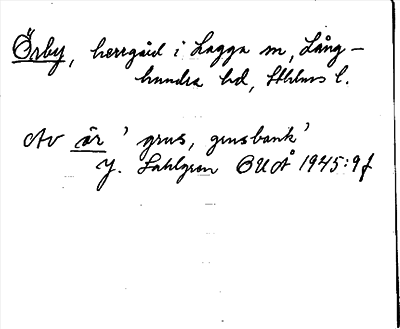 Örby, herrgård i Lagga sn, Lång-
hundra hd, Sthlms l.
Av ör 'grus, grusbank'
J. Sahlgren OUÅ 1945:9f